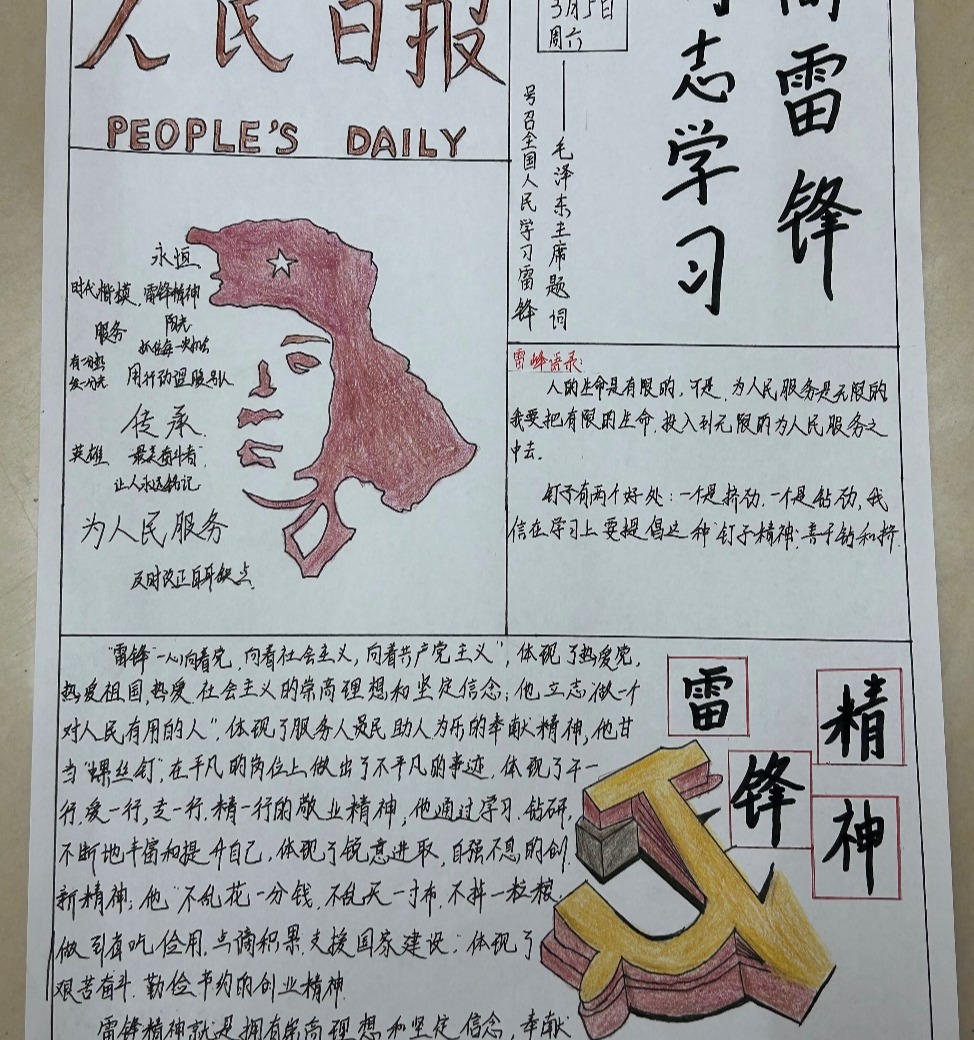 人民日报
PEOPLE'S DAILY
3月5日
周六
毛泽东主席题词
号召全国人民学习雷锋
向雷锋
同志学习
永恒
时代楷模、雷锋精神
服务 阳光
抓住每一次机会
有一分热
发一分光
用行动温暖身队
传承
英雄 最美奋斗者
让人永远铭记
为人民服务
及时改正自身缺点
雷峰语录:
人的生命是有限的,可是,为人民服务是无限的
我要把有限的生命,投入到无限的为人民服务之
中去。
钉子有两个好处:一个是挤劲,一个是钻劲,我
信在学习上要提倡这种"钉子精神"善于钻和挤.
"雷锋"一心向着党,向着社会主义,向着共产党主义",体现了热爱党,
热爱祖国,热爱社会主义的崇高理想和坚定信念;他立志"做一个
对人民有用的人",体现了服务人员民助人为乐的奉献精神,他甘
当"螺丝钉",在平凡的岗位上做出了不平凡的事迹,体现了干一
行,爱一行,专一行,精一行的敬业精神,他通过学习,钻研,
不断地丰富和提升自己,体现了锐意进取,自强不息的创
新精神;他"不乱花一分钱,不乱买一寸布,不掉一粒粮,
做到省吃俭用,点滴积累,支援国家建设;体现了
艰苦奋斗,勤俭节约的创业精神.
雷锋精神就是拥有崇高理想和坚定信念,奉献
雷锋
精神